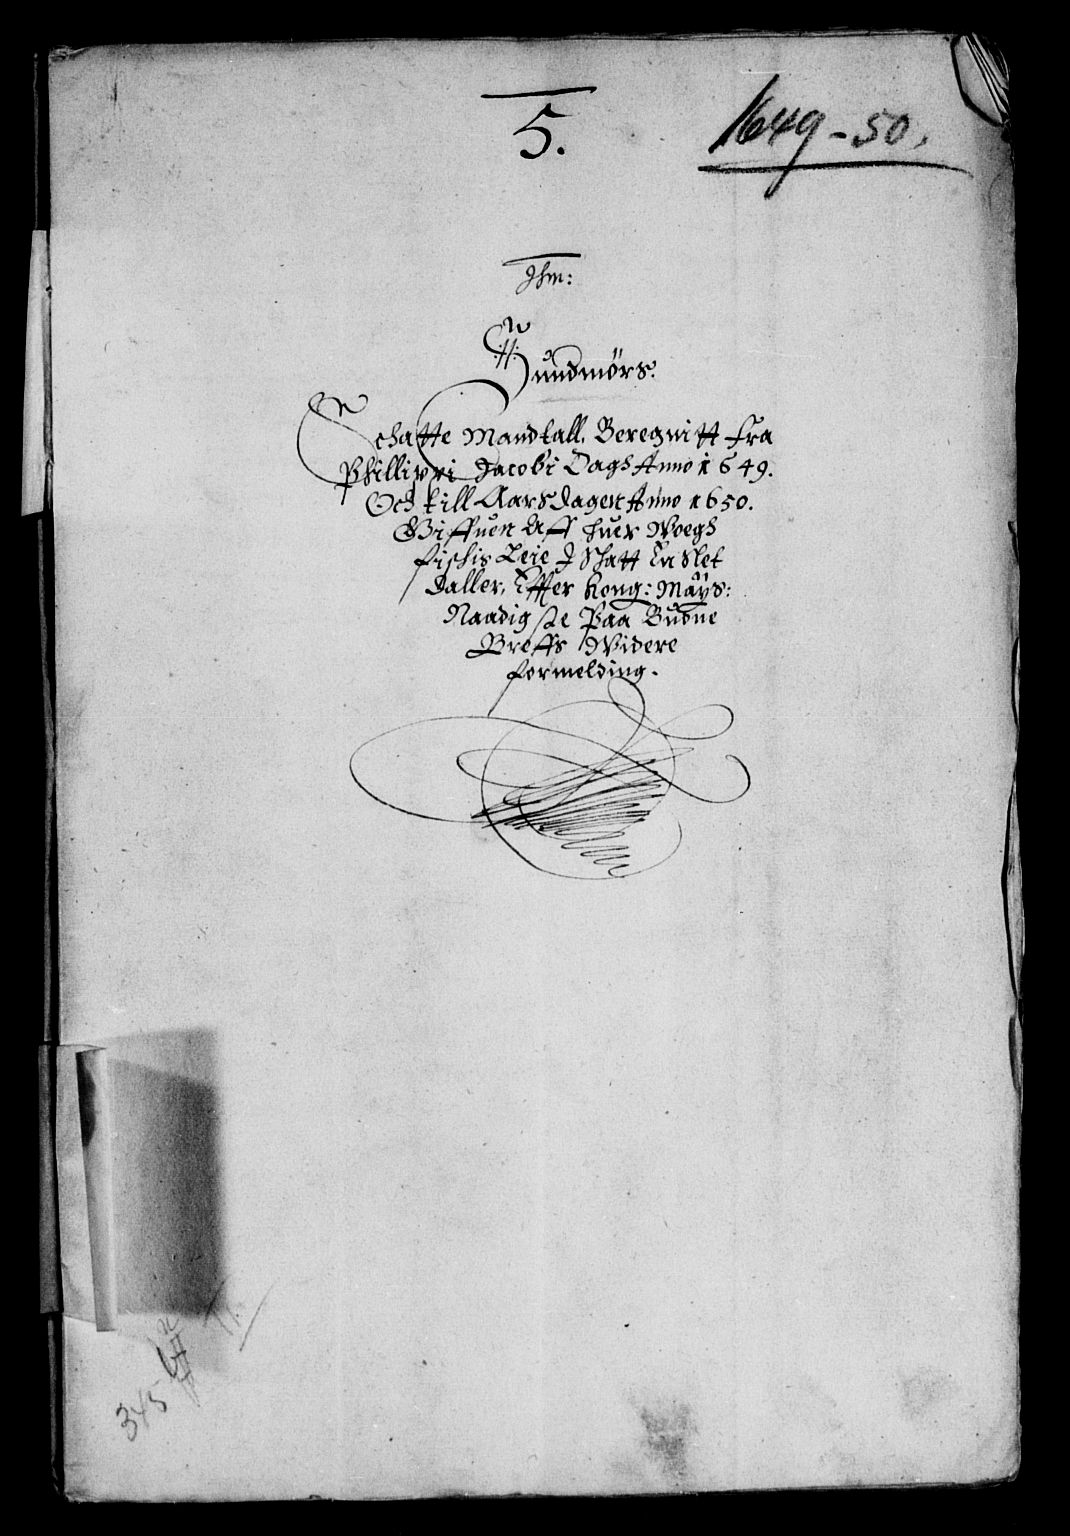 5.
1649-50.
Jhm:
Sündmörs.
Schatte Mandtall, Beregnitt fra
Phillippi Jacobi Dags Anno 1649.
Och till Aarsdagen Anno 1650.
Giffuen Aff huer Woegs
fischis Leie J Schatt En Slet
daller, Effter Kong: Mäÿs:
Naadigste Paa Budne
Breffs Widere
formelding.
345